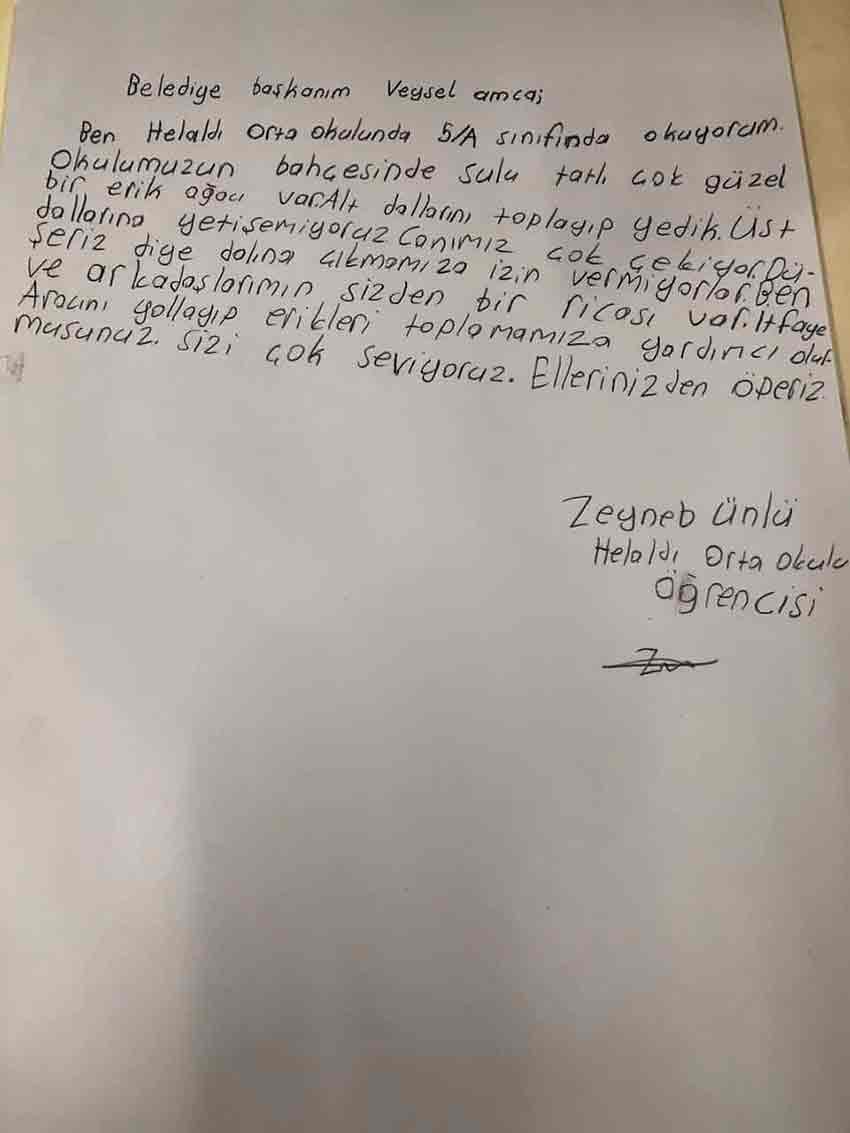 Belediye başkanım Veysel amca;
Ben Helaldı Orta okulunda 5/A sınıfında okuyorum.
Okulumuzun bahçesinde sulu tatlı çok güzel
bir erik ağacı var.Alt dallarını toplayıp yedik.Üst
dallarına yetişemiyoruz Canımız çok çekiyor.Dü-
şeriz diye dalına çıkmamıza izin vermiyorlar.Ben
ve arkadaşlarımın sizden bir ricası var.İtfaye
Aracını yollayıp erikleri toplamamıza yardımcı olur
musunuz. Sizi çok seviyoruz. Ellerinizden öperiz.
Zeyneb Ünlü
Helaldı Orta okulu
Öğrencisi